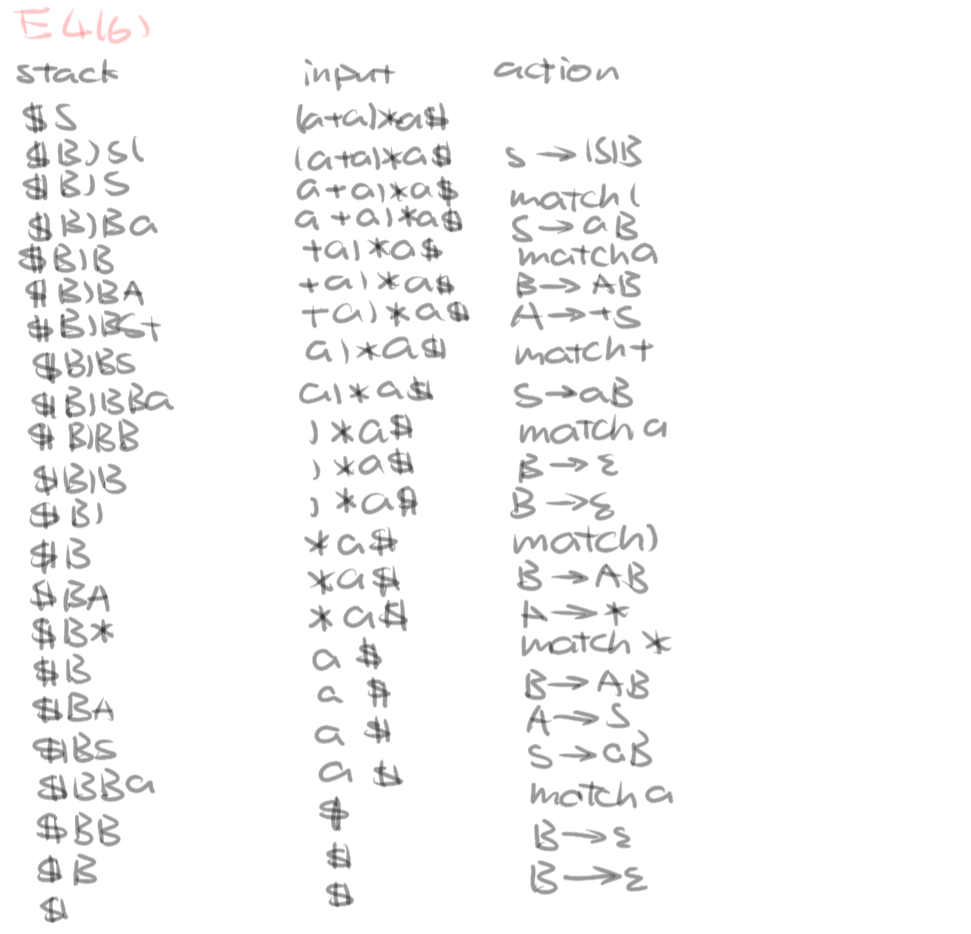 E4(6)
stack input action
$S (a+a)*a$
$B)S( (a+a)*a$ S→(S)B
$B)S a+a)*a$ match(
$B)Ba a+a)*a$ S→aB
$B)B +a)*a$ match a
$B)BA +a)*a$ B→AB
$B)BS+ +a)*a$ A→+S
$B)BS a)*a$ match+
$B)BBa a)*a$ S→aB
$B)BB )*a$ match a
$B)B )*a$ B→ε
$B) )*a$ B→ε
$B *a$ match)
$BA *a$ B→AB
$B* *a$ A→*
$B a$ match*
$BA a$ B→AB
$BS a$ A→S
$BBa a$ S→aB
$BB $ match a
$B $ B→ε
$ $ B→ε